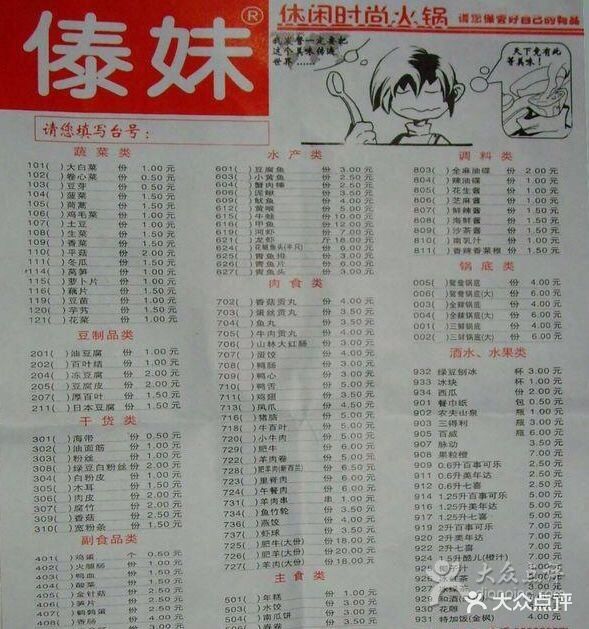 傣妹®
休闲时尚火锅 请您保管好自己的物品
我发誓一定要把
这个美味传遍
世界……
天下竟有此
等美味！
请您填写台号：
蔬菜类
101( )大白菜 份 1.00元
102( )卷心菜 份 0.50元
103( )豆芽 份 0.50元
104( )菠菜 份 1.50元
105( )茼蒿 份 1.50元
106( )鸡毛菜 份 1.00元
107( )土豆 份 1.00元
108( )生菜 份 1.50元
109( )香菜 份 1.50元
110( )平菇 份 2.00元
111( )冬瓜 份 1.50元
114( )莴笋 份 1.00元
115( )萝卜片 份 1.00元
116( )藕片 份 1.50元
119( )豆苗 份 3.00元
120( )芋艿 份 1.50元
121( )花菜 份 1.00元
豆制品类
201( )油豆腐 份 1.00元
202( )百叶结 份 1.00元
204( )冻豆腐 份 2.00元
205( )豆腐皮 份 2.00元
207( )厚百叶 份 1.50元
211( )日本豆腐 份 1.50元
干货类
301( )海带 份 0.50元
302( )油面筋 份 1.00元
303( )粉丝 份 1.00元
308( )绿豆白粉丝 份 2.00元
304( )白粉皮 份 1.00元
305( )木耳 份 1.50元
306( )肉皮 份 2.00元
307( )腐竹 份 2.00元
309( )香菇 份 2.50元
310( )宽粉条 份 1.50元
副食品类
401( )鸡蛋 个 0.50元
402( )火腿肠 份 1.00元
403( )鸭血 份 1.50元
404( )酸菜 份 1.50元
405( )金针菇 份 2.50元
406( )笋片 份 2.50元
407( )鹌鹑蛋 份
408( )香肠 份
水产类
601( )豆腐鱼 份 3.00元
603( )小黄鱼 份 2.50元
604( )蟹肉棒 份 2.50元
606( )泥鳅 份 3.50元
609( )鱿鱼 份 4.00元
612( )黄喉 份 5.00元
615( )牛蛙 份 10.00元
616( )甲鱼 份 12.00元
619( )河虾 份 7.00元
621( )龙虾 份 18.00元
624( )花鲢鱼头(半只) 份 6.00元
625( )青鱼排 份 3.00元
626( )青鱼片 份 6.00元
627( )青鱼头 份 3.00元
肉食类
702( )香菇贡丸 份 4.00元
703( )蛋丝贡丸 份 3.50元
704( )鱼丸 份 3.50元
705( )牛肉贡丸 份 4.00元
706( )山林大红肠 份 3.00元
707( )蛋饺 份 4.00元
708( )鸭肠 份 3.50元
709( )鸭心 份 3.00元
710( )鸭舌 份 6.50元
711( )鸡翅 份 3.50元
713( )凤爪 份 4.50元
716( )猪脑 份 5.00元
718( )牛百叶 份 5.50元
720( )小牛肉 份 5.50元
729( )肥牛 份 6.00元
722( )羊肉卷 份 6.00元
728( )肥羊肉(新西兰) 份 6.50元
723( )里脊肉 份 4.00元
724( )午餐肉 份 4.00元
731( )羊肉串 串 1.00元
734( )鱼竹轮 份 3.50元
736( )燕饺 份 4.50元
737( )虾球 份 3.50元
726( )肥牛(大份) 份 18.00元
732( )肥羊(大份) 份 20.00元
727( )羊肉(大份) 份 18.00元
主食类
501( )年糕 份 1.00元
503( )水饺 份 3.00元
504( )南瓜饼 份 3.00元
调料类
803( )全麻油碟 份 2.00元
804( )辣油碟 份 1.00元
805( )花生酱 份 1.00元
806( )芝麻酱 份 1.00元
807( )鲜辣酱 份 1.50元
808( )海鲜酱 份 1.50元
809( )沙茶酱 份 1.50元
810( )南乳汁 份 1.00元
811( )香辣香菜根 份 1.50元
锅底类
005( )鸳鸯锅底 份 4.00元
006( )鸳鸯锅底(大) 份 6.00元
003( )全辣锅底 份 4.00元
004( )全辣锅底(大) 份 6.00元
001( )三鲜锅底 份 4.00元
002( )三鲜锅底(大) 份 6.00元
酒水、水果类
932 绿豆刨冰 杯 3.00元
933 冰块 杯 1.00元
934 西瓜 份 2.00元
901 餐巾纸 包 0.50元
902 农夫山泉 瓶 1.00元
903 三得利 瓶 3.00元
905 百威 瓶 6.00元
907 脉动 3.50元
908 果粒橙 7.00元
909 0.6升百事可乐 2.50元
911 0.6升美年达 2.50元
912 0.6升七喜 2.50元
914 1.25升百事可乐 5.00元
916 1.25升美年达 5.00元
917 1.25升七喜 5.00元
919 2升百事可乐 7.00元
920 2升美年达 7.00元
922 2升七喜 7.00元
924 1.5升酷儿(橙汁) 7.00元
930 花雕
931 特加饭(金枫)
大众点评
dianping.com
大众点评